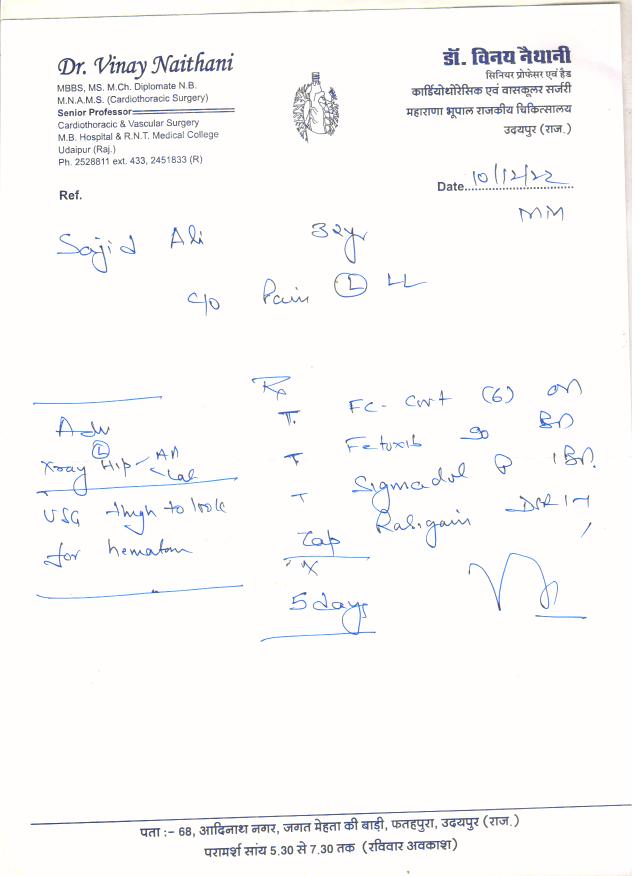 Dr. Vinay Naithani
MBBS, MS. M.Ch. Diplomate N.B.
M.N.A.M.S. (Cardiothoracic Surgery)
Senior Professor
Cardiothoracic & Vascular Surgery
M.B. Hospital & R.N.T. Medical College
Udaipur (Raj.)
Ph. 2528811 ext. 433, 2451833 (R)
डॉ. विनय नैथानी
सिनियर प्रोफेसर एवं हैड
कार्डियोथोरेसिक एवं वासकूलर सर्जरी
महाराणा भूपाल राजकीय चिकित्सालय
उदयपुर (राज.)
Ref.
Date 10/12/22
MM
Sajid Ali 32yr
c/o Pain (L) LL
Adv
(L)
Xray Hip
Lat
USG thigh to look
for hematom
Rx
T. (6)
T 90 BD
T Sigmadol P 1 BD.
Cap Rabigain DSR
X
5 days
पता :- 68, आदिनाथ नगर, जगत मेहता की बाड़ी, फतहपुरा, उदयपुर (राज.)
परामर्श सांय 5.30 से 7.30 तक (रविवार अवकाश)